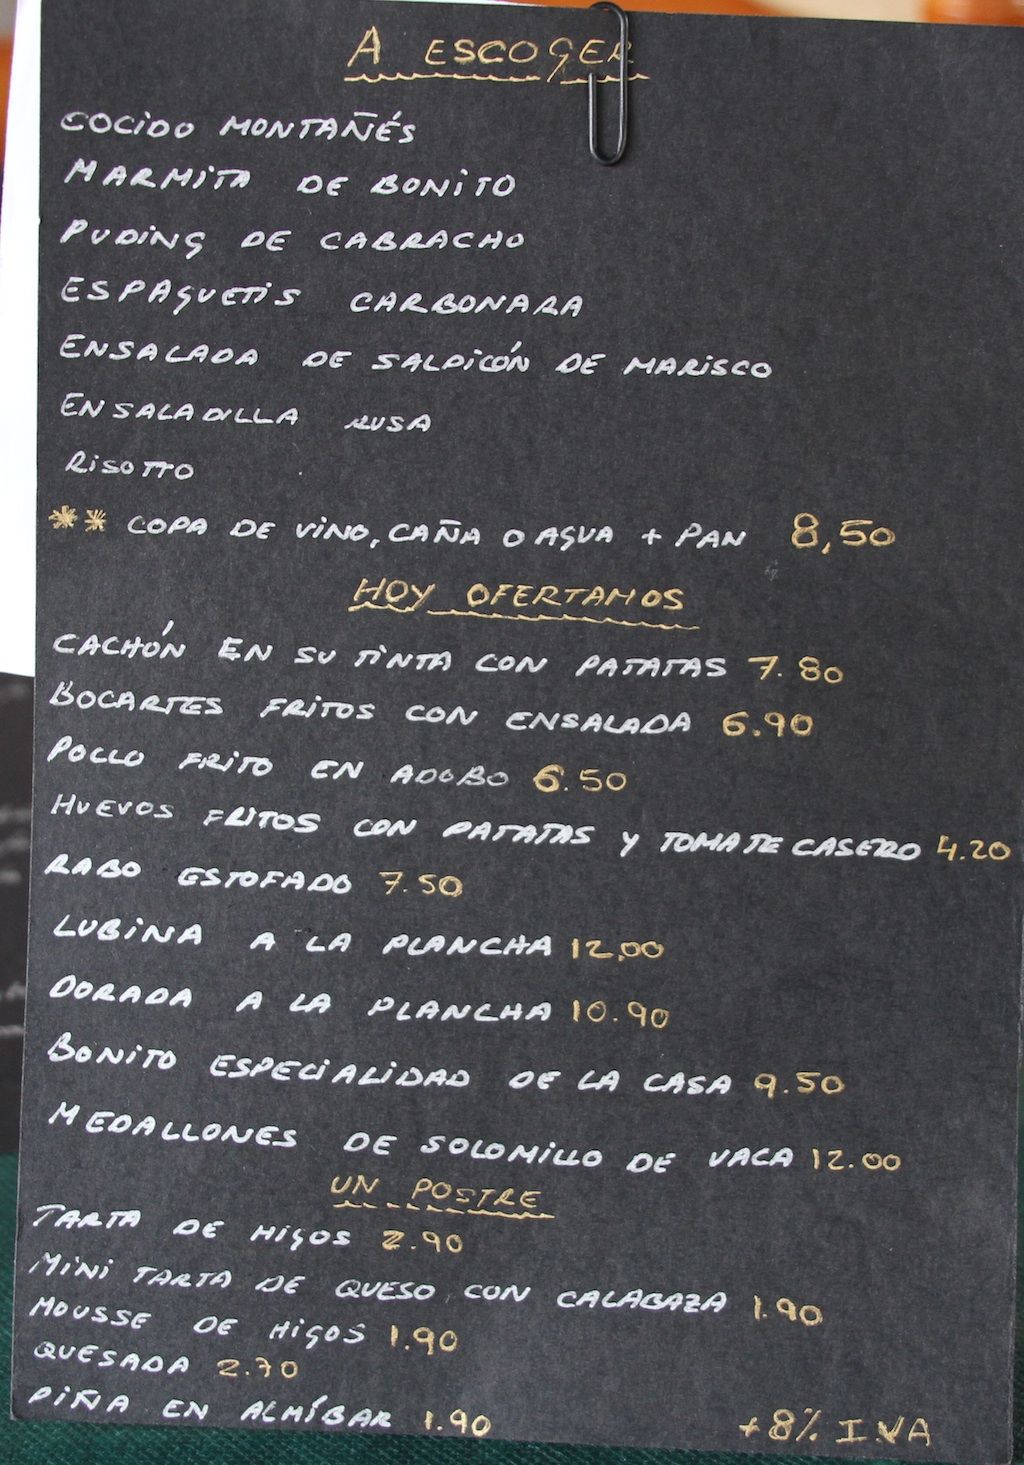 A ESCOGER
COCIDO MONTAÑÉS
MARMITA DE BONITO
PUDING DE CABRACHO
ESPAGUETIS CARBONARA
ENSALADA DE SALPICÓN DE MARISCO
ENSALADILLA RUSA
RISOTTO
** COPA DE VINO, CAÑA O AGUA + PAN 8,50
HOY OFERTAMOS
CACHÓN EN SU TINTA CON PATATAS 7.80
BOCARTES FRITOS CON ENSALADA 6.90
POLLO FRITO EN ADOBO 6.50
HUEVOS FRITOS CON PATATAS Y TOMATE CASERO 4.20
RABO ESTOFADO 7.50
LUBINA A LA PLANCHA 12.00
DORADA A LA PLANCHA 10.90
BONITO ESPECIALIDAD DE LA CASA 9.50
MEDALLONES DE SOLOMILLO DE VACA 12.00
UN POSTRE
TARTA DE HIGOS 2.90
MINI TARTA DE QUESO CON CALABAZA 1.90
MOUSSE DE HIGOS 1.90
QUESADA 2.70
PIÑA EN ALMÍBAR 1.90
+8% I.VA